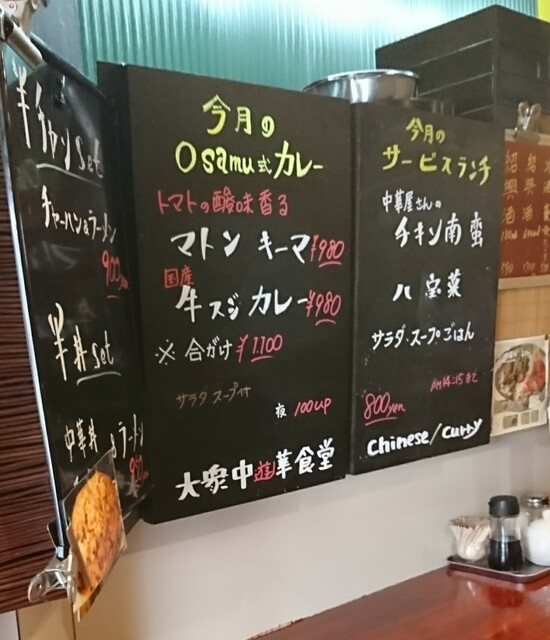 半チャンset
チャーハン&ラーメン
900yen
半丼set
中華丼&ラーメン
今月の
Osamu式カレー
トマトの酸味香る
マトン キーマ ¥980
国産
牛スジ カレー ¥980
※合がけ ¥1.100
サラダ スープ付
夜 100up
大衆中遊華食堂
今月の
サービスランチ
中華屋さんの
チキン南蛮
八宝菜
サラダ・スープごはん
PM14:15まで
800yen
Chinese/Curry
紹興酒
紹興酒